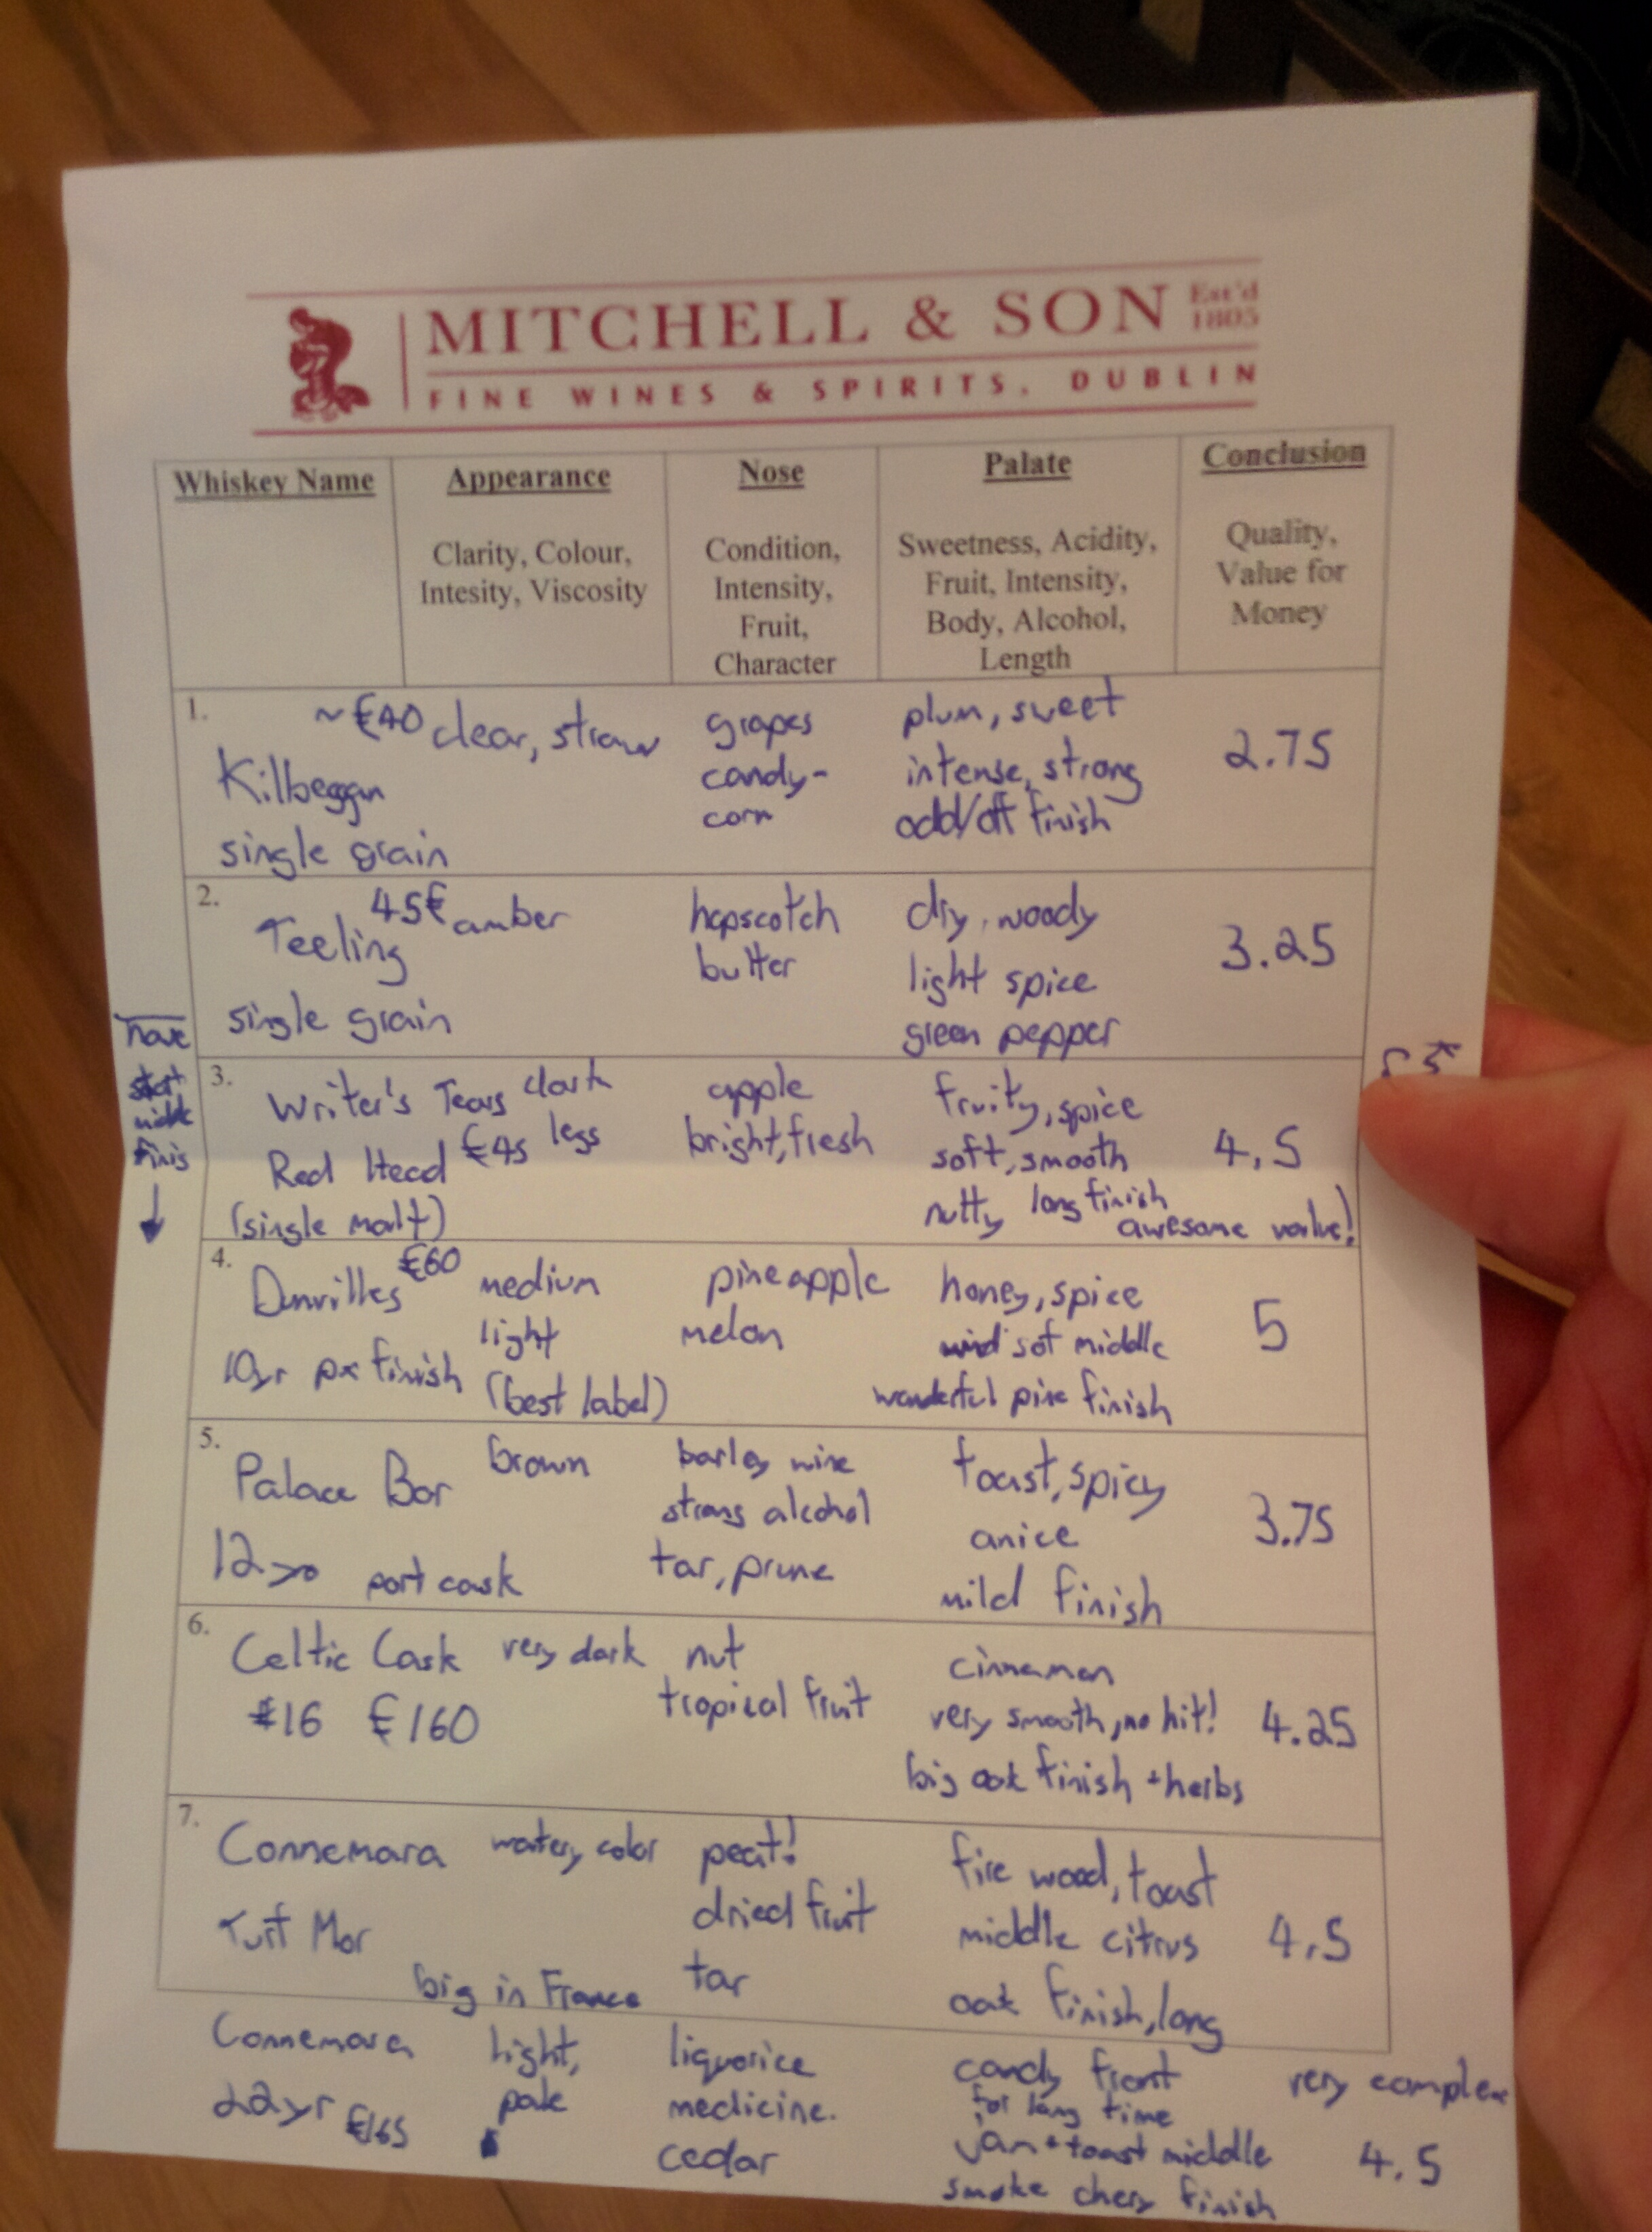 MITCHELL & SON Est'd 1805
FINE WINES & SPIRITS, DUBLIN
Whiskey Name
Appearance
Clarity, Colour,
Intesity, Viscosity
Nose
Condition,
Intensity,
Fruit,
Character
Palate
Sweetness, Acidity,
Fruit, Intensity,
Body, Alcohol,
Length
Conclusion
Quality,
Value for
Money
1.
~€40
Kilbeggan
single grain
clear, straw
grapes
candy-
corn
plum, sweet
intense, strong
odd/off finish
2.75
2.
45€
Teeling
single grain
amber
hopscotch
butter
dry, woody
light spice
green pepper
3.25
3.
Writer's Tears
Red Head €45
(single malt)
dark
legs
apple
bright, fresh
fruity, spice
soft, smooth
nutty long finish
4.5
awesome value!
4.
Dunvilles €60
10yr px finish
medium
light
(best label)
pineapple
melon
honey, spice
middle
wonderful pine finish
5
5.
Palace Bar
12yo port cask
brown
barley wine
strong alcohol
tar, prune
toast, spicy
anice
mild finish
3.75
6.
Celtic Cask
#16 €160
very dark
nut
tropical fruit
cinnamon
very smooth, no hit!
big oak finish + herbs
4.25
7.
Connemara
Turf Mor
watery color
big in France
peat!
dried fruit
tar
fire wood, toast
middle citrus
oak finish, long
4.5
Connemara
22yr €165
light,
pale
liquorice
medicine.
cedar
candy front
for long time
jam + toast middle
smoke chery finish
very complex
4.5
nose
start
middle
finis